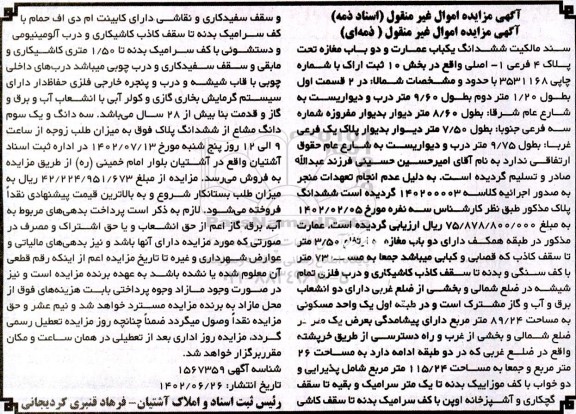 آگهی مزایده اموال غیر منقول (اسناد ذمه)
آگهی مزایده اموال غیر منقول ( ذمه‌ای)
سند مالکیت ششدانگ یکباب عمارت و دو باب مغازه تحت
پلاک ۴ فرعی ۱- اصلی واقع در بخش ۱۰ ثبت اراک با شماره
چاپی ۳۵۳۱۱۶۸ با حدود و مشخصات شمالا: در ۲ قسمت اول
بطول ۱/۲۰ متر دوم بطول ۹/۶۰ متر درب و دیواریست به
شارع عام شرقا: بطول ۸/۶۰ متر دیوار بدیوار مفروزه شماره
سه فرعی جنوبا: بطول ۷/۵۰ متر دیوار بدیوار پلاک یک فرعی
غربا: بطول ۹/۷۵ متر درب و دیواریست به شارع عام حقوق
ارتفاقی ندارد به نام آقای امیرحسین حسینی فرزند عبداله
صادر و تسلیم گردیده است. به دلیل عدم انجام تعهدات منجر
به صدور اجرائیه کلاسه ۱۴۰۲۰۰۰۰۳ گردیده است ششدانگ
پلاک مذکور طبق نظر کارشناس سه نفره مورخ ۱۴۰۲/۰۲/۰۵
به مبلغ ۷۵/۸۷۸/۸۰۰/۰۰۰ ریال ارزیابی گردیده است. عمارت
مذکور در طبقه همکف دارای دو باب مغازه به ارتفاع ۳/۵۰ متر
تا سقف کاذب که قصابی و کبابی میباشد جمعا به مساحت ۷۳ متر
با کف سنگی و بدنه تا سقف کاذب کاشیکاری و درب فلزی تمام
شیشه در ضلع شمالی و بخشی از ضلع غربی دارای دو انشعاب
برق و آب و گاز مشترک است و در طبقه اول یک واحد مسکونی
به مساحت ۸۹/۲۴ متر مربع دارای پیشامدگی بعرض یک متر در
ضلع شمالی و بخشی از غرب و راه دسترسی از طریق خرپشته
واقع در ضلع غربی که در دو طبقه ادامه دارد به مساحت ۲۶
متر مربع و جمعا به مساحت ۱۱۵/۲۴ متر مربع شامل پذیرایی و
دو خواب با کف موزاییک بدنه تا یک متر سرامیک و بقیه تا سقف
گچکاری و آشپزخانه اوپن با کف سرامیک بدنه تا سقف کاشی
و سقف سفیدکاری و نقاشی دارای کابینت ام دی اف حمام با
کف سرامیک بدنه تا سقف کاذب کاشیکاری و درب آلومینیومی
و دستشوئی با کف سرامیک بدنه تا ۱/۵۰ متری کاشیکاری و
مابقی و سقف سفیدکاری و درب چوبی میباشد درب‌های داخلی
چوبی با قاب شیشه و درب و پنجره خارجی فلزی حفاظدار دارای
سیستم گرمایش بخاری گازی و کولر آبی با انشعاب آب و برق و
گاز و قدمت بنا بیش از ۲۸ سال می‌باشد. سه دانگ و یک سوم
دانگ مشاع از ششدانگ پلاک فوق به میزان طلب زوجه از ساعت
۹ الی ۱۲ روز پنج شنبه مورخ ۱۴۰۲/۰۷/۱۳ در اداره ثبت اسناد
آشتیان واقع در آشتیان بلوار امام خمینی (ره) از طریق مزایده
به فروش می‌رسد. مزایده از مبلغ ۴۲/۲۲۴/۹۵۱/۶۷۳ ریال به
میزان طلب بستانکار شروع و به بالاترین قیمت پیشنهادی نقداً
فروخته می‌شود. لازم به ذکر است پرداخت بدهی‌های مربوط به
آب، برق، گاز اعم از حق انشعاب و یا حق اشتراک و مصرف در
صورتی که مورد مزایده دارای آنها باشد و نیز بدهی‌های مالیاتی و
عوارض شهرداری و غیره تا تاریخ مزایده اعم از اینکه رقم قطعی
آن معلوم شده یا نشده باشد به عهده برنده مزایده است و نیز
در صورت وجود مازاد وجوه پرداختی بابت هزینه‌های فوق از
محل مازاد به برنده مزایده مسترد خواهد شد و نیم عشر و حق
مزایده نقداً وصول میگردد ضمناً چنانچه روز مزایده تعطیل رسمی
گردد، مزایده روز اداری بعد از تعطیلی در همان ساعت و مکان
مقرر برگزار خواهد شد.
شناسه آگهی ۱۵۶۷۳۵۹
تاریخ انتشار: ۱۴۰۲/۰۶/۲۶
رئیس ثبت اسناد و املاک آشتیان - فرهاد قنبری کردیجانی